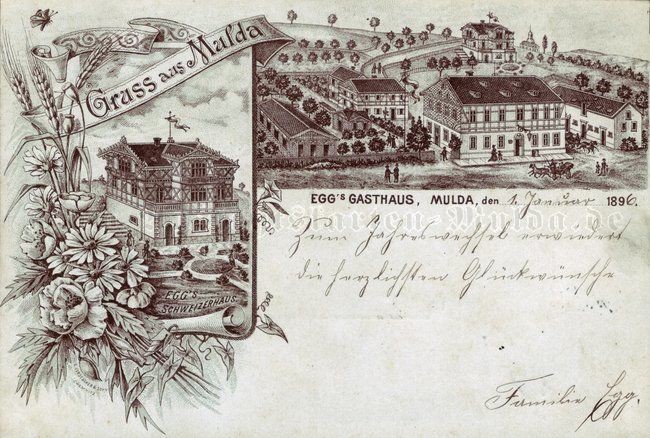 Gruss aus Mulda
EGG's SCHWEIZERHAUS.
EGG's GASTHAUS, MULDA, den 1. Januar 1896.
Zum Jahreswechsel erwiedert
die herzlichsten Glückwünsche
Familie Egg.